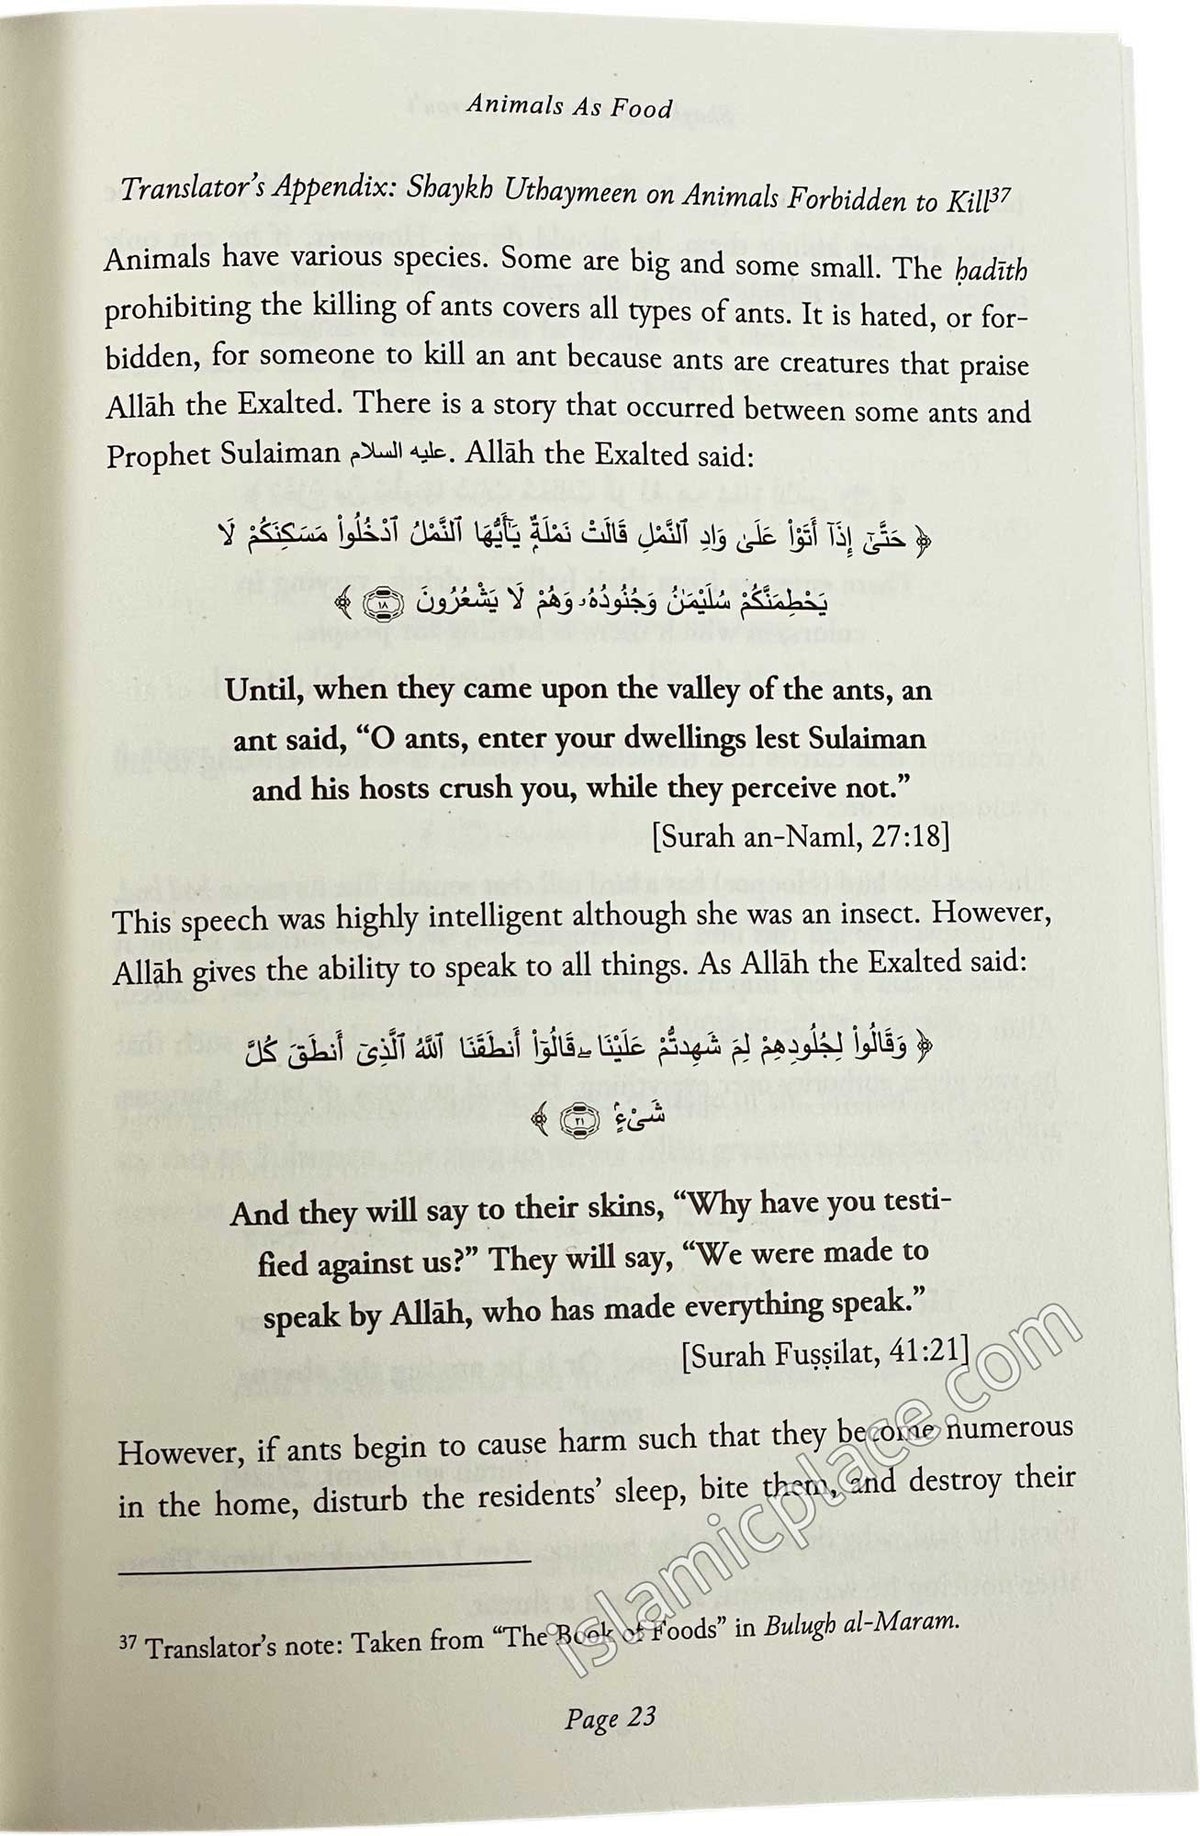 Animals As Food
Translator's Appendix: Shaykh Uthaymeen on Animals Forbidden to Kill37
Animals have various species. Some are big and some small. The ḥadīth
prohibiting the killing of ants covers all types of ants. It is hated, or for-
bidden, for someone to kill an ant because ants are creatures that praise
Allāh the Exalted. There is a story that occurred between some ants and
Prophet Sulaiman عليه السلام. Allāh the Exalted said:
﴿ حَتَّىٰٓ إِذَآ أَتَوْا۟ عَلَىٰ وَادِ ٱلنَّمْلِ قَالَتْ نَمْلَةٌ يَـٰٓأَيُّهَا ٱلنَّمْلُ ٱدْخُلُوا۟ مَسَـٰكِنَكُمْ لَا
يَحْطِمَنَّكُمْ سُلَيْمَـٰنُ وَجُنُودُهُۥ وَهُمْ لَا يَشْعُرُونَ ١٨ ﴾
Until, when they came upon the valley of the ants, an
ant said, “O ants, enter your dwellings lest Sulaiman
and his hosts crush you, while they perceive not.”
[Surah an-Naml, 27:18]
This speech was highly intelligent although she was an insect. However,
Allāh gives the ability to speak to all things. As Allāh the Exalted said:
﴿ وَقَالُوا۟ لِجُلُودِهِمْ لِمَ شَهِدتُّمْ عَلَيْنَا ۖ قَالُوٓا۟ أَنطَقَنَا ٱللَّهُ ٱلَّذِىٓ أَنطَقَ كُلَّ
شَىْءٍ ٢١ ﴾
And they will say to their skins, “Why have you testi-
fied against us?” They will say, “We were made to
speak by Allāh, who has made everything speak.”
[Surah Fuṣṣilat, 41:21]
However, if ants begin to cause harm such that they become numerous
in the home, disturb the residents' sleep, bite them, and destroy their
37 Translator's note: Taken from “The Book of Foods” in Bulugh al-Maram.
Page 23
islamicplace.com